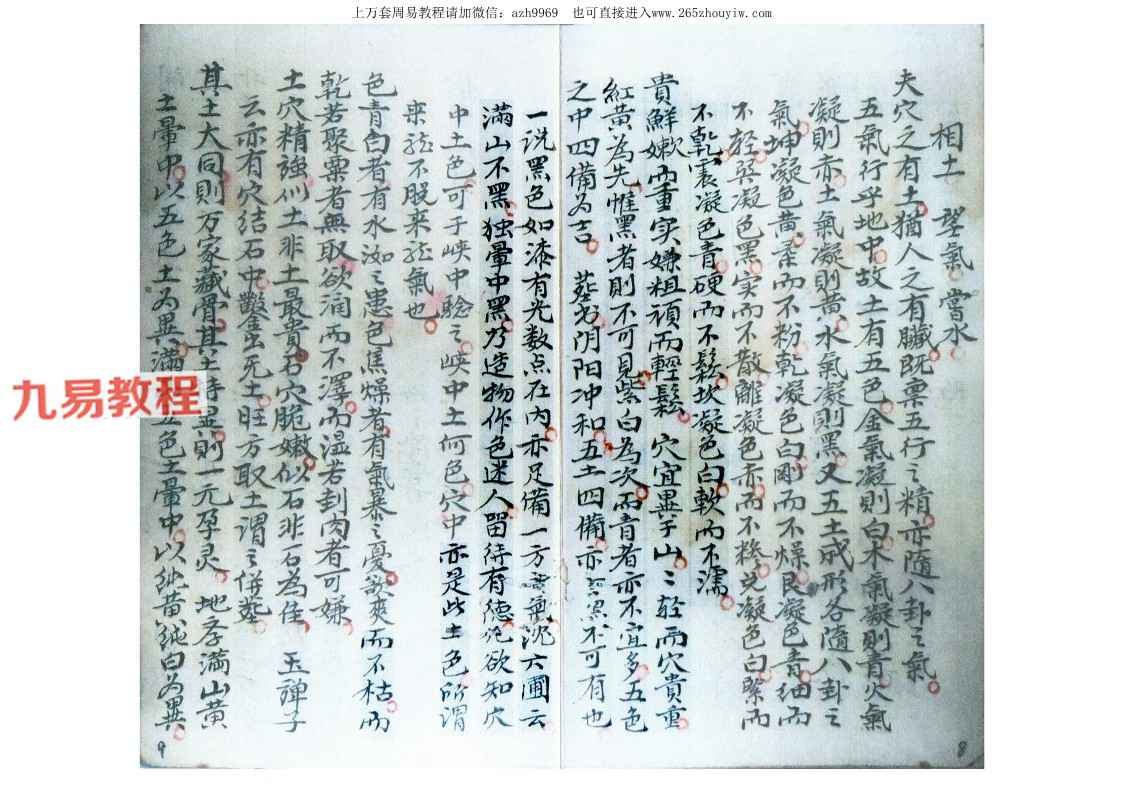 上万套周易教程请加微信：azh9969 也可直接进入www.265zhouyiw.com
相土 望氣 嘗水
夫穴之有土猶人之有臟既禀五行之精亦隨八卦之氣
五氣行乎地中故土有五色金氣凝則白木氣凝則青火氣
凝則赤土氣凝則黄水氣凝則黑又五土成形各隨八卦之
氣坤凝色黄柔而不粉乾凝色白剛而不燥艮凝色青細而
不轻巽凝色黑实而不散離凝色赤而不糝兑凝色白緊而
不乾震凝色青硬而不鬆坎凝色白軟而不濡
貴鮮嫰而重实嫌粗頑而輕鬆 穴宜異于山山轻而穴貴重
紅黄為先惟黑者則不可見紫白為次而青者亦不宜多五色
之中四備为吉 葬书阴阳冲和五土四備亦言黑不可有也
一説黑色如漆有光数点在内亦足備一方 氣沈六圃云
滿山不黑独暈中黑乃造物作色迷人留待有德 欲知穴
中土色可于峡中驗之峡中土何色穴中亦是此土色所谓
来龍不脱来龍氣也
色青白者有水 之患色焦燥者有氣暴之憂 爽而不枯而
乾若聚粟者無取欲润而不澤而湿若刲肉者可嫌
土穴精強似土非土最貴石穴脆嫩似石非石為佳 玉彈子
云亦有穴结石中鑿 死土旺方取土謂之併葬
其土大同則万家藏骨其土特異則一元孕灵 地 滿山黄
土暈中以五色土为異滿 五色土暈中以純黄純白为異
九易教程
8
9